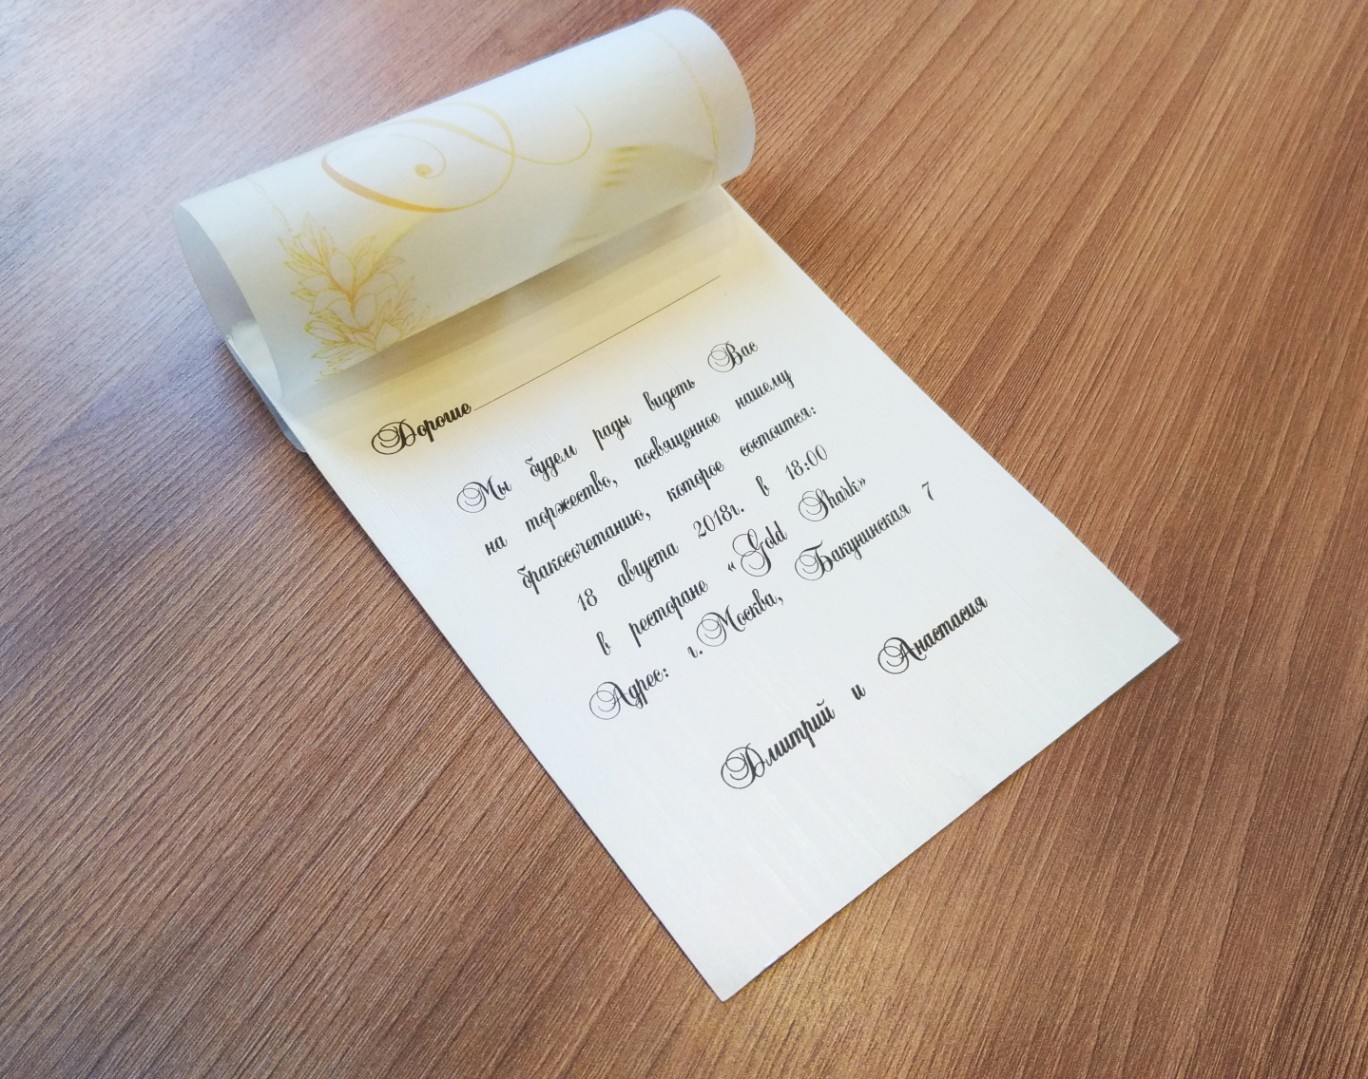 Дорогие
Мы будем рады видеть Вас
на торжество, посвященное нашему
бракосочетанию, которое состоится:
18 августа 2018г. в 18:00
в ресторане «Gold Shark»
Адрес: г.Москва, Бакунинская 7
Дмитрий и Анастасия